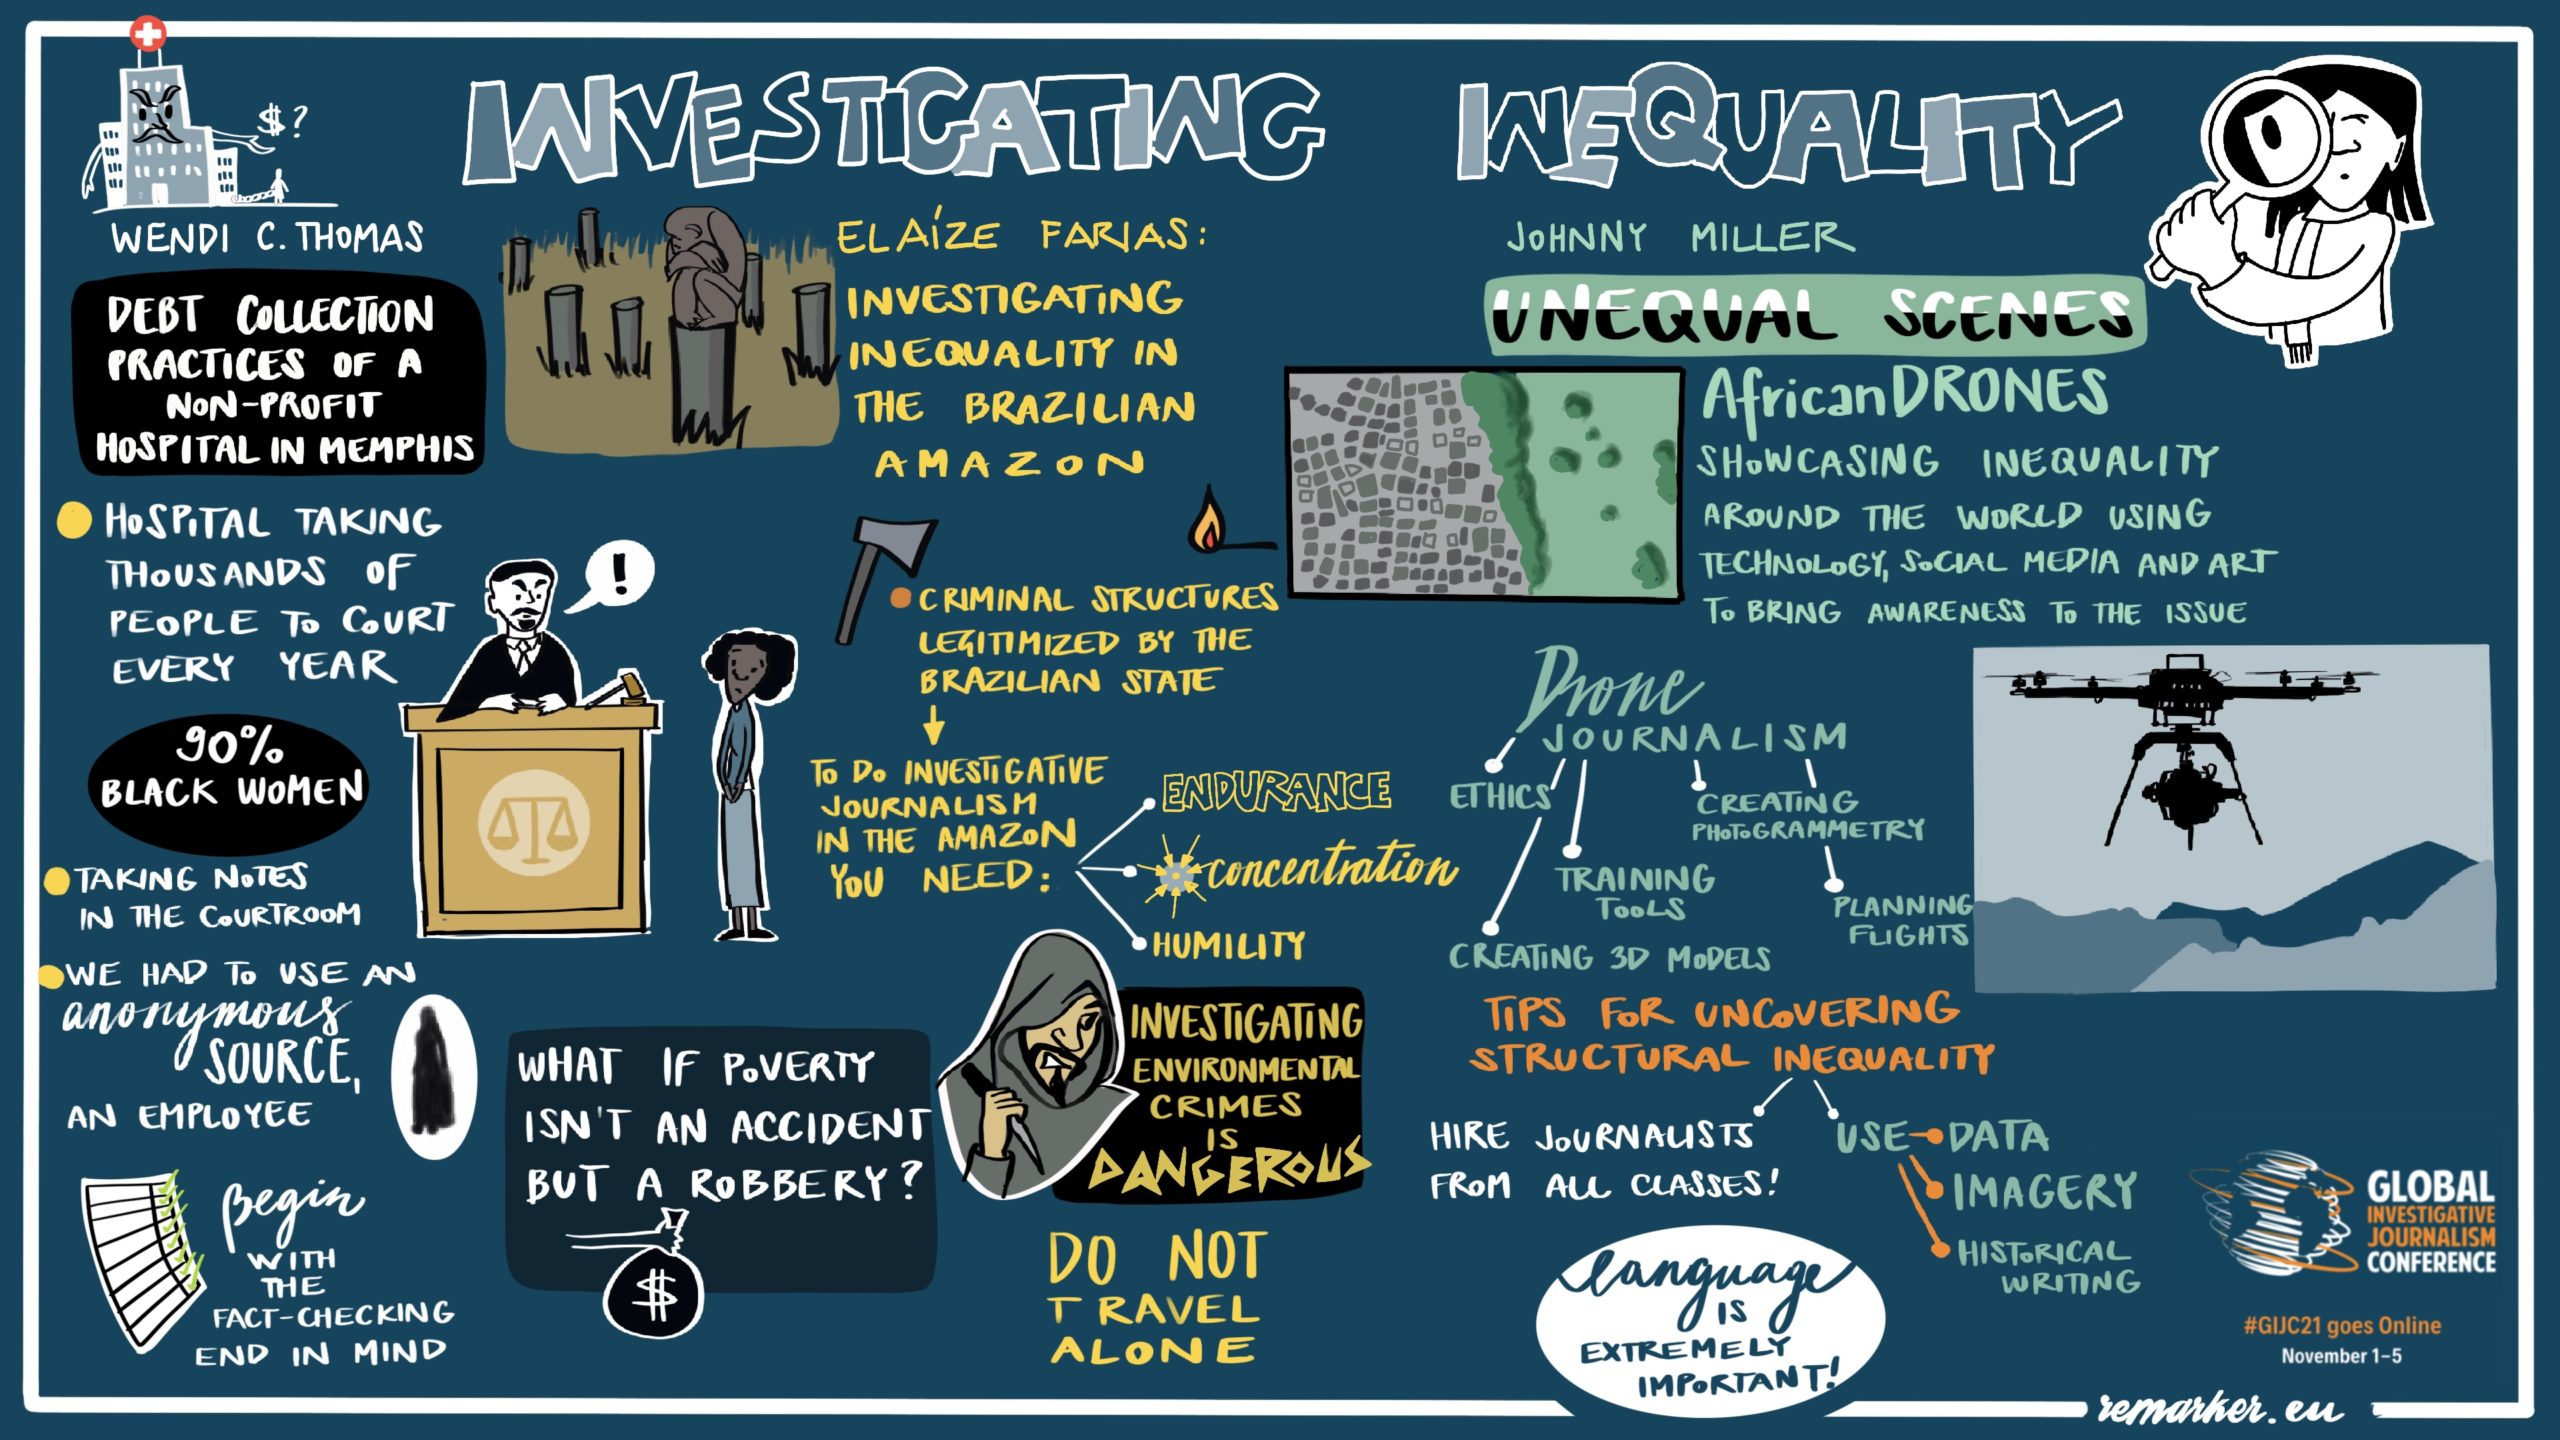 INVESTIGATING INEQUALITY
$?
WENDI C. THOMAS
DEBT COLLECTION
PRACTICES OF A
NON-PROFIT
HOSPITAL IN MEMPHIS
HOSPITAL TAKING
THOUSANDS OF
PEOPLE TO COURT
EVERY YEAR
!
90%
BLACK WOMEN
TAKING NOTES
IN THE COURTROOM
WE HAD TO USE AN
anonymous
SOURCE,
AN EMPLOYEE
Begin
WITH
THE
FACT-CHECKING
END IN MIND
WHAT IF POVERTY
ISN'T AN ACCIDENT
BUT A ROBBERY?
$
ELAÍZE FARIAS:
INVESTIGATING
INEQUALITY IN
THE BRAZILIAN
AMAZON
CRIMINAL STRUCTURES
LEGITIMIZED BY THE
BRAZILIAN STATE
TO DO INVESTIGATIVE
JOURNALISM
IN THE AMAZON
YOU NEED:
ENDURANCE
concentration
HUMILITY
INVESTIGATING
ENVIRONMENTAL
CRIMES
IS
DANGEROUS
DO NOT
TRAVEL
ALONE
JOHNNY MILLER
UNEQUAL SCENES
AfricanDRONES
SHOWCASING INEQUALITY
AROUND THE WORLD USING
TECHNOLOGY, SOCIAL MEDIA AND ART
TO BRING AWARENESS TO THE ISSUE
Drone
JOURNALISM
ETHICS
CREATING
PHOTOGRAMMETRY
TRAINING
TOOLS
PLANNING
FLIGHTS
CREATING 3D MODELS
TIPS FOR UNCOVERING
STRUCTURAL INEQUALITY
HIRE JOURNALISTS
FROM ALL CLASSES!
USE DATA
IMAGERY
HISTORICAL
WRITING
language
IS
EXTREMELY
IMPORTANT!
GLOBAL
INVESTIGATIVE
JOURNALISM
CONFERENCE
#GIJC21 goes Online
November 1–5
remarker.eu